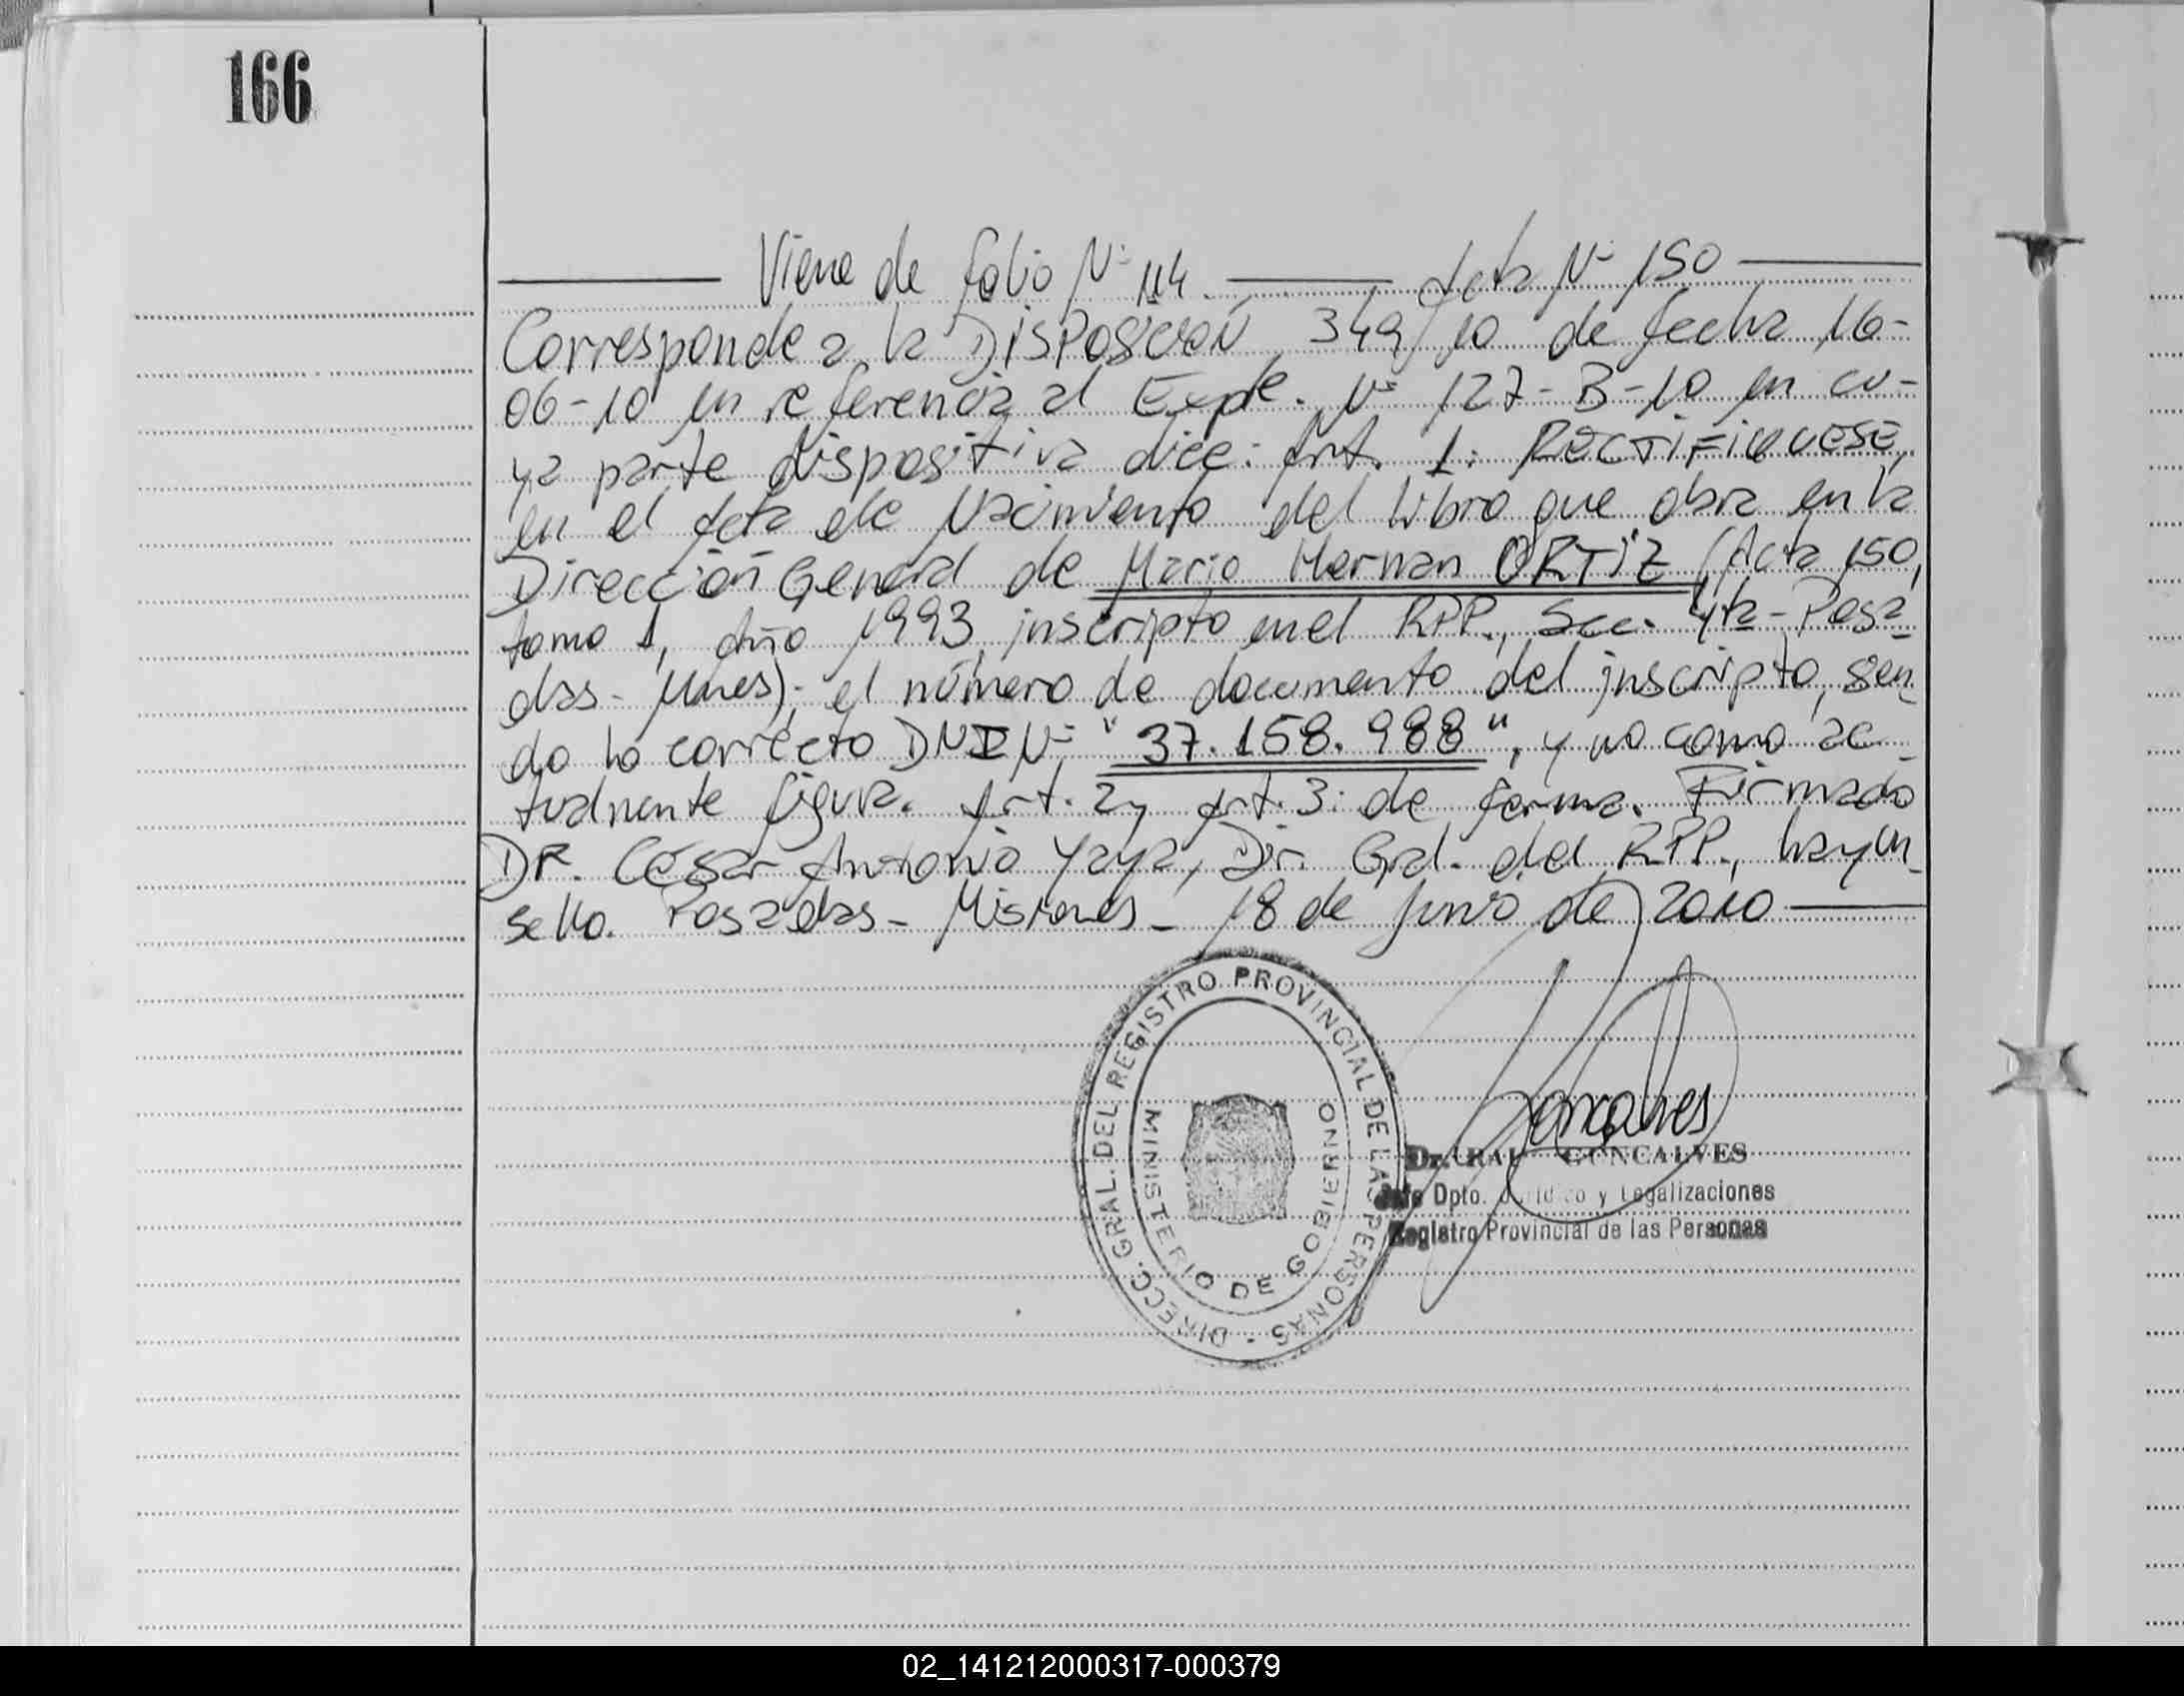 166
Viene de folio Nº 114. Acta Nº 150
Corresponde a la DISPOSICIÓN 349/10 de fecha 16-
06-10 en referencia al Expte. Nº 127-B-10 en cu-
ya parte dispositiva dice: Art. 1: RECTIFIQUESE,
en el Acta de Nacimiento del Libro que obra en la
Dirección General de Mario Hernan ORTIZ (Acta 150,
tomo 1, Año 1993 inscripto en el RPP., Sec. 4ta-Posa
das- Mnes); el número de documento del inscripto, sien-
do lo correcto DNI Nº "37.158.988", y no como ac-
tualmente figura. Art. 2 y Art. 3: de forma. Firmado
DR. César Antonio Yaya, Dir. Gral. del RPP., hay un
sello. Posadas- Misiones- 18 de Junio de 2010
DIRECC. GRAL. DEL REGISTRO PROVINCIAL DE LAS PERSONAS -
MINISTERIO DE GOBIERNO
Goncalves
Dr. GONCALVES
Jefe Dpto. Jurídico y Legalizaciones
Registro Provincial de las Personas
02_141212000317-000379